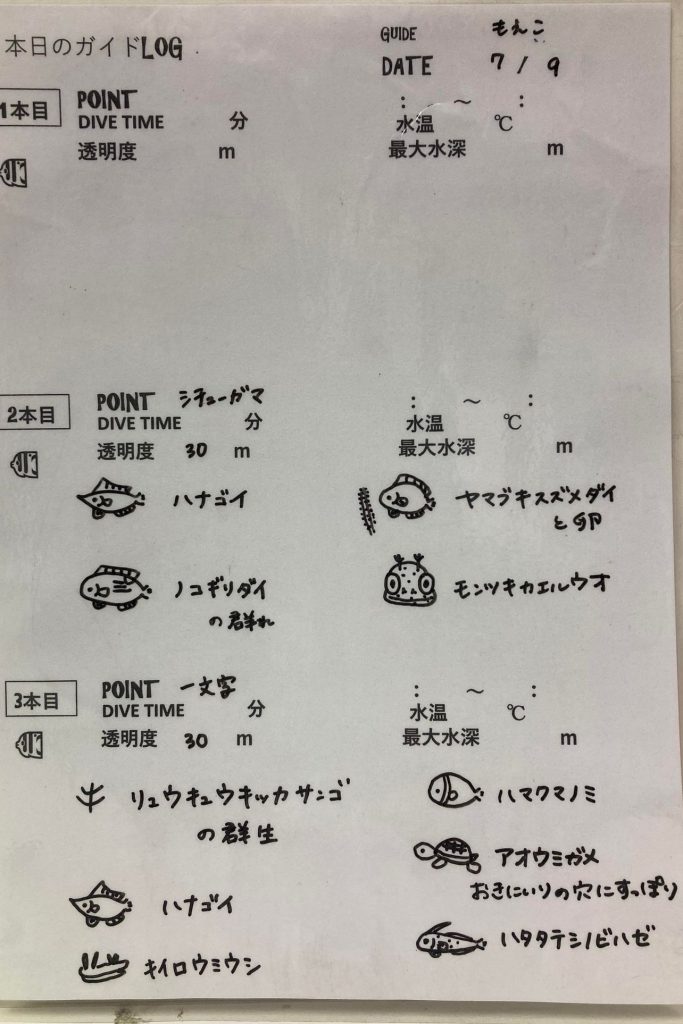 本日のガイドLOG
GUIDE もえこ
DATE 7/9
1本目 POINT : ～ :
DIVE TIME 分 水温 ℃
透明度 m 最大水深 m
2本目 POINT シチューガマ : ～ :
DIVE TIME 分 水温 ℃
透明度 30 m 最大水深 m
ハナゴイ ヤマブキスズメダイ
と卵
ノコギリダイ モンツキカエルウオ
の群れ
3本目 POINT 一文字 : ～ :
DIVE TIME 分 水温 ℃
透明度 30 m 最大水深 m
リュウキュウキッカサンゴ ハマクマノミ
の群生
アオウミガメ
おきにいりの穴にすっぽり
ハナゴイ
ハタタテシノビハゼ
キイロウミウシ